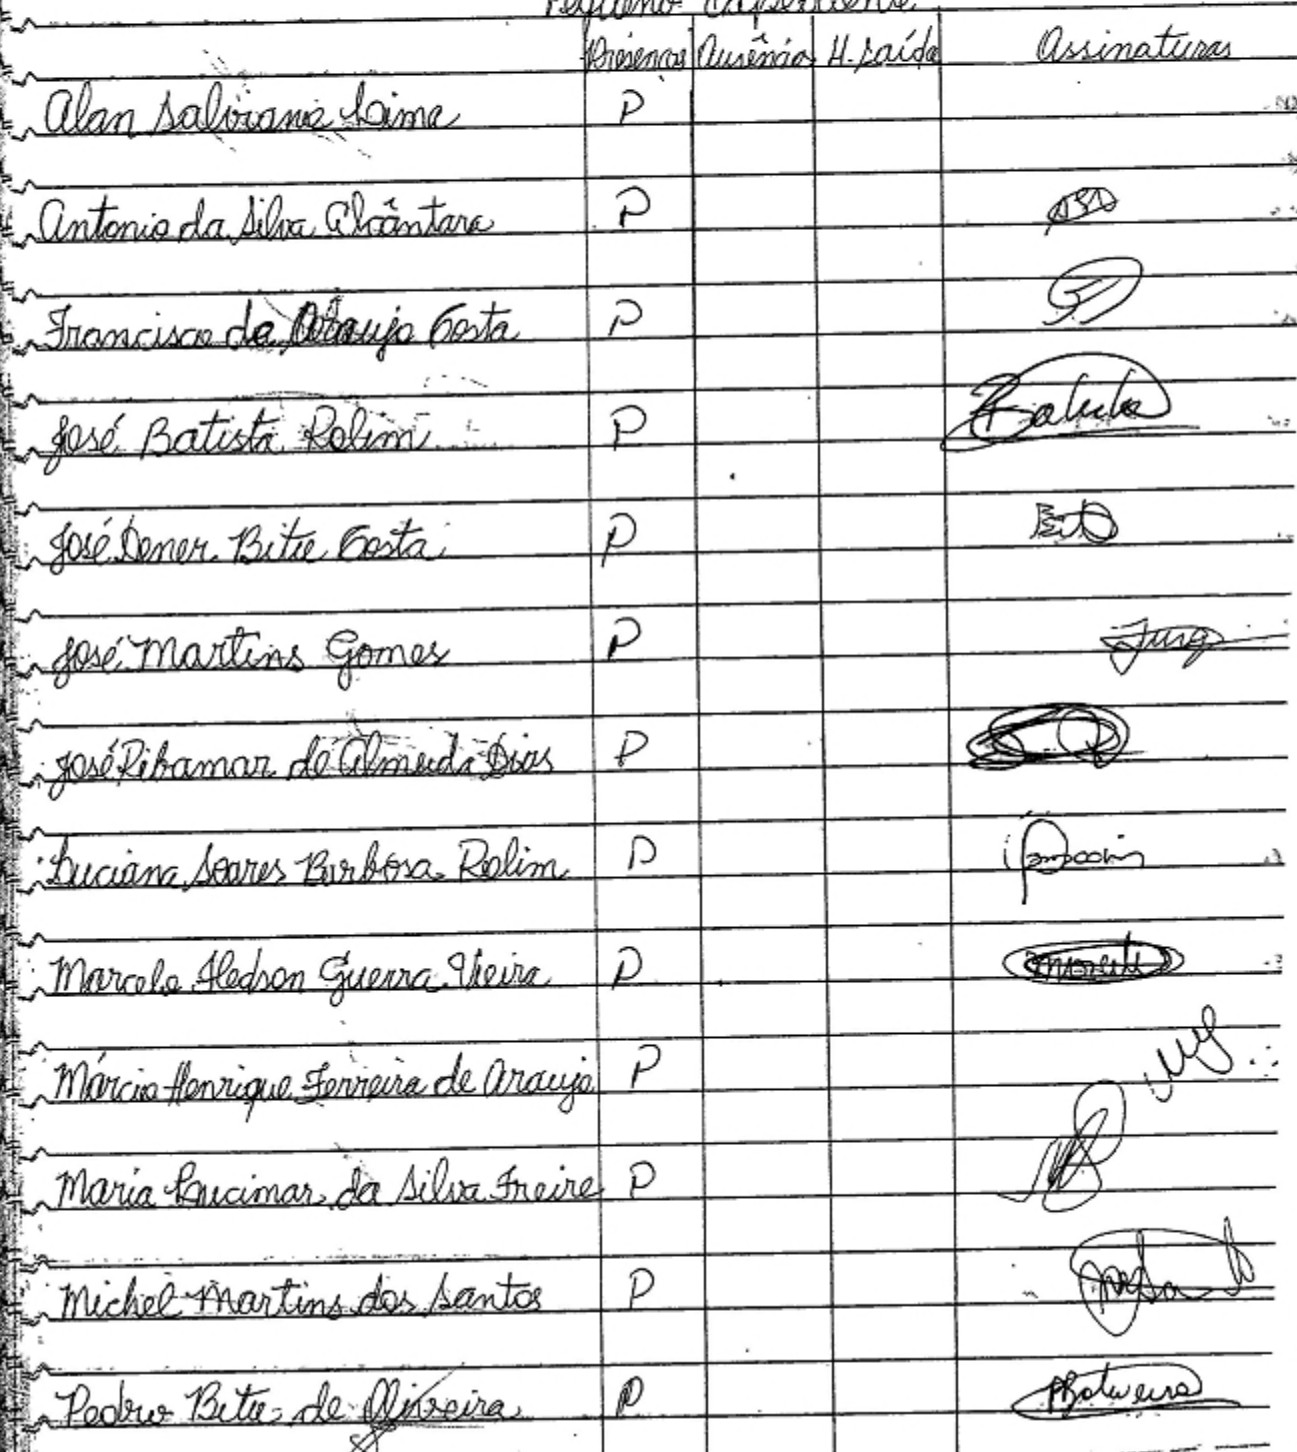 Pequeno Expediente
Presença Ausência H. Saída Assinaturas
Alan Salviano Lima P
Antonio da Silva Alcântara P
Francisco de Araujo Costa P
José Batista Rolim P Batista
José Dener Bitu Costa P
José Martins Gomes P
José Ribamar de Almeida Dias P
Luciana Soares Barbosa Rolim P
Marcelo Hedson Guerra Vieira P
Márcio Henrique Ferreira de Araujo P
Maria Lucimar da Silva Freire P
Michel Martins dos Santos P
Pedro Bitu de Oliveira P